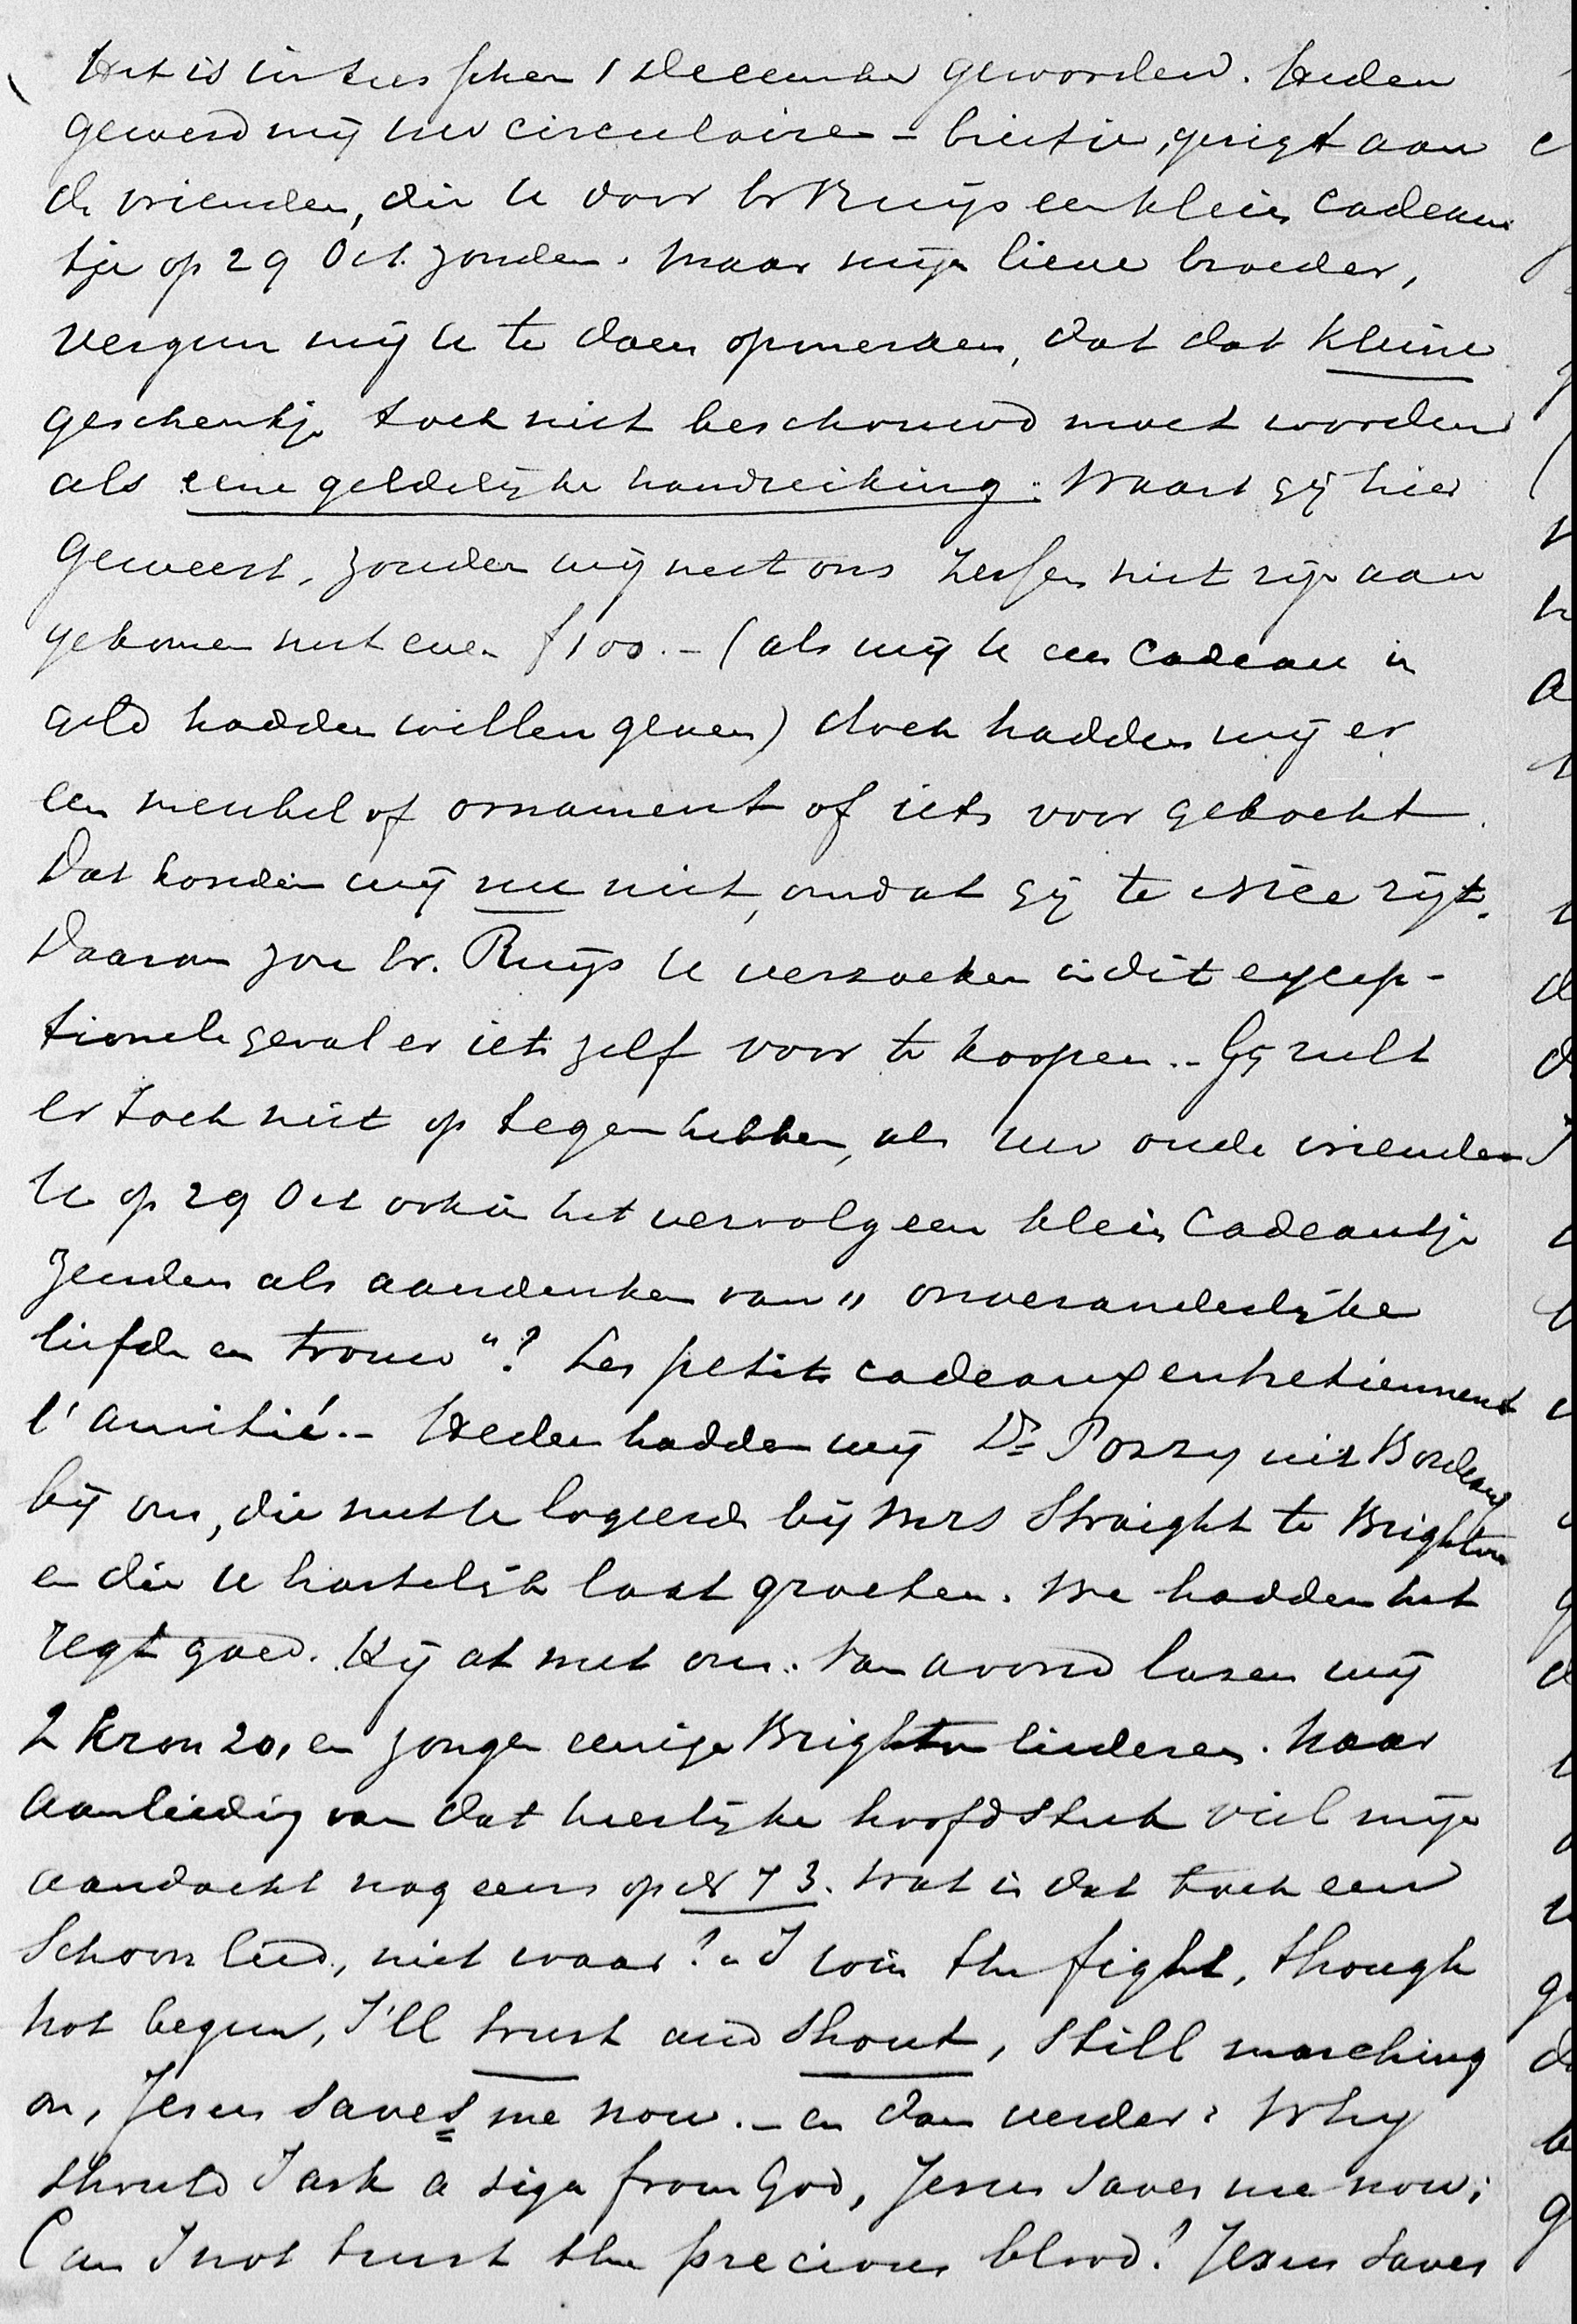 Het is intusschen 1 December geworden. Heden
gewerd mij uw circulaire-briefje, gerigt aan
de vrienden, die U door br Ruijs een klein cadeau
tje op 29 Oct. zonden. Maar mijn lieve broeder,
vergun mij U te doen opmerken, dat dat kleine
geschenkje toch niet beschouwd moet worden
als eene geldelijke handreiking. Waart gij hier
geweest, zouden wij met ons zessen niet zijn aan
gekomen met een f 100.- (als wij U een cadeau in
geld hadden willen geven) doch hadden wij er
een meubel of ornament of iets voor gekocht.
Dat konden wij nu niet, omdat gij te Nice zijt.
Daarom zou br. Ruijs U verzoeken in dit excep-
tioneele geval er iets zelf voor te koopen. - Gij zult
er toch niet op tegen hebben, als uw oude vrienden
U op 29 Oct ook in het vervolg een klein cadeautje
zenden als aandenken van "onveranderlijke
liefde en trouw"? Les petits cadeaux entretiennent
l'amitié. - Heden hadden wij Dr Pozzy uit Bordeaux
bij ons, die met U logeerde bij Mrs Straight te Brighton
en die U hartelijk laat groeten. We hadden het
regt goed. Hij at met ons. Van avond lazen wij
2 Kron 20, en zongen eenige Brighton liederen. Naar
aanleiding van dat heerlijke hoofdstuk viel mijn
aandacht nog eens op No 73. Wat is dat toch een
schoon lied, niet waar? "I win the fight, though
not begun, I'll trust and shout, still marching
on, Jesus saves me now. - en dan verder: Why
should I ask a sign from God, Jesus saves me now;
Can I not trust the precious blood? Jesus saves